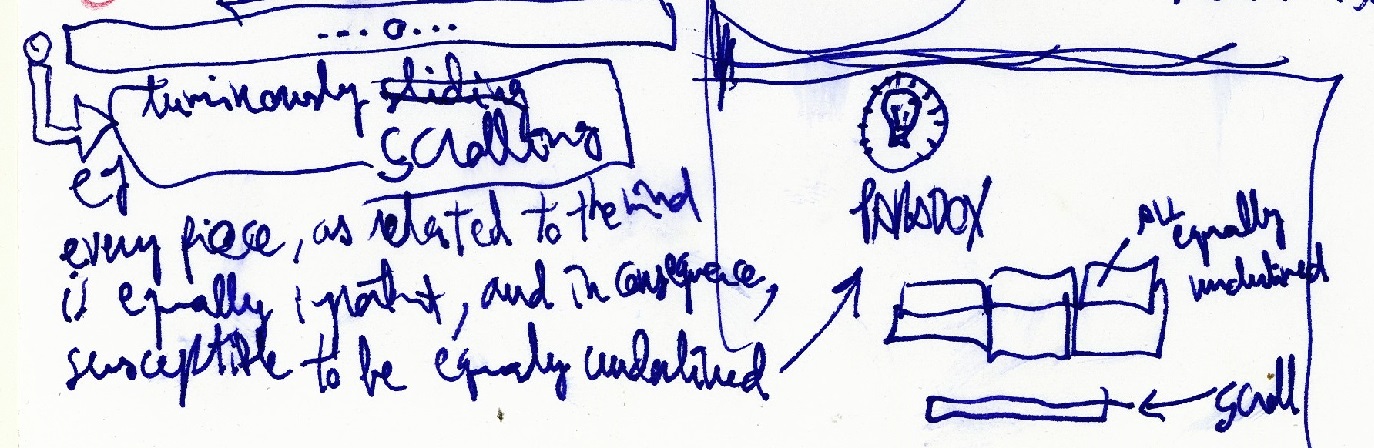 sliding
scrolling
eg
every piece, as related to the mind
is equally important, and in consequence,
susceptible to be equaly underlined
PARADOX
ALL
equally
underlined
scroll